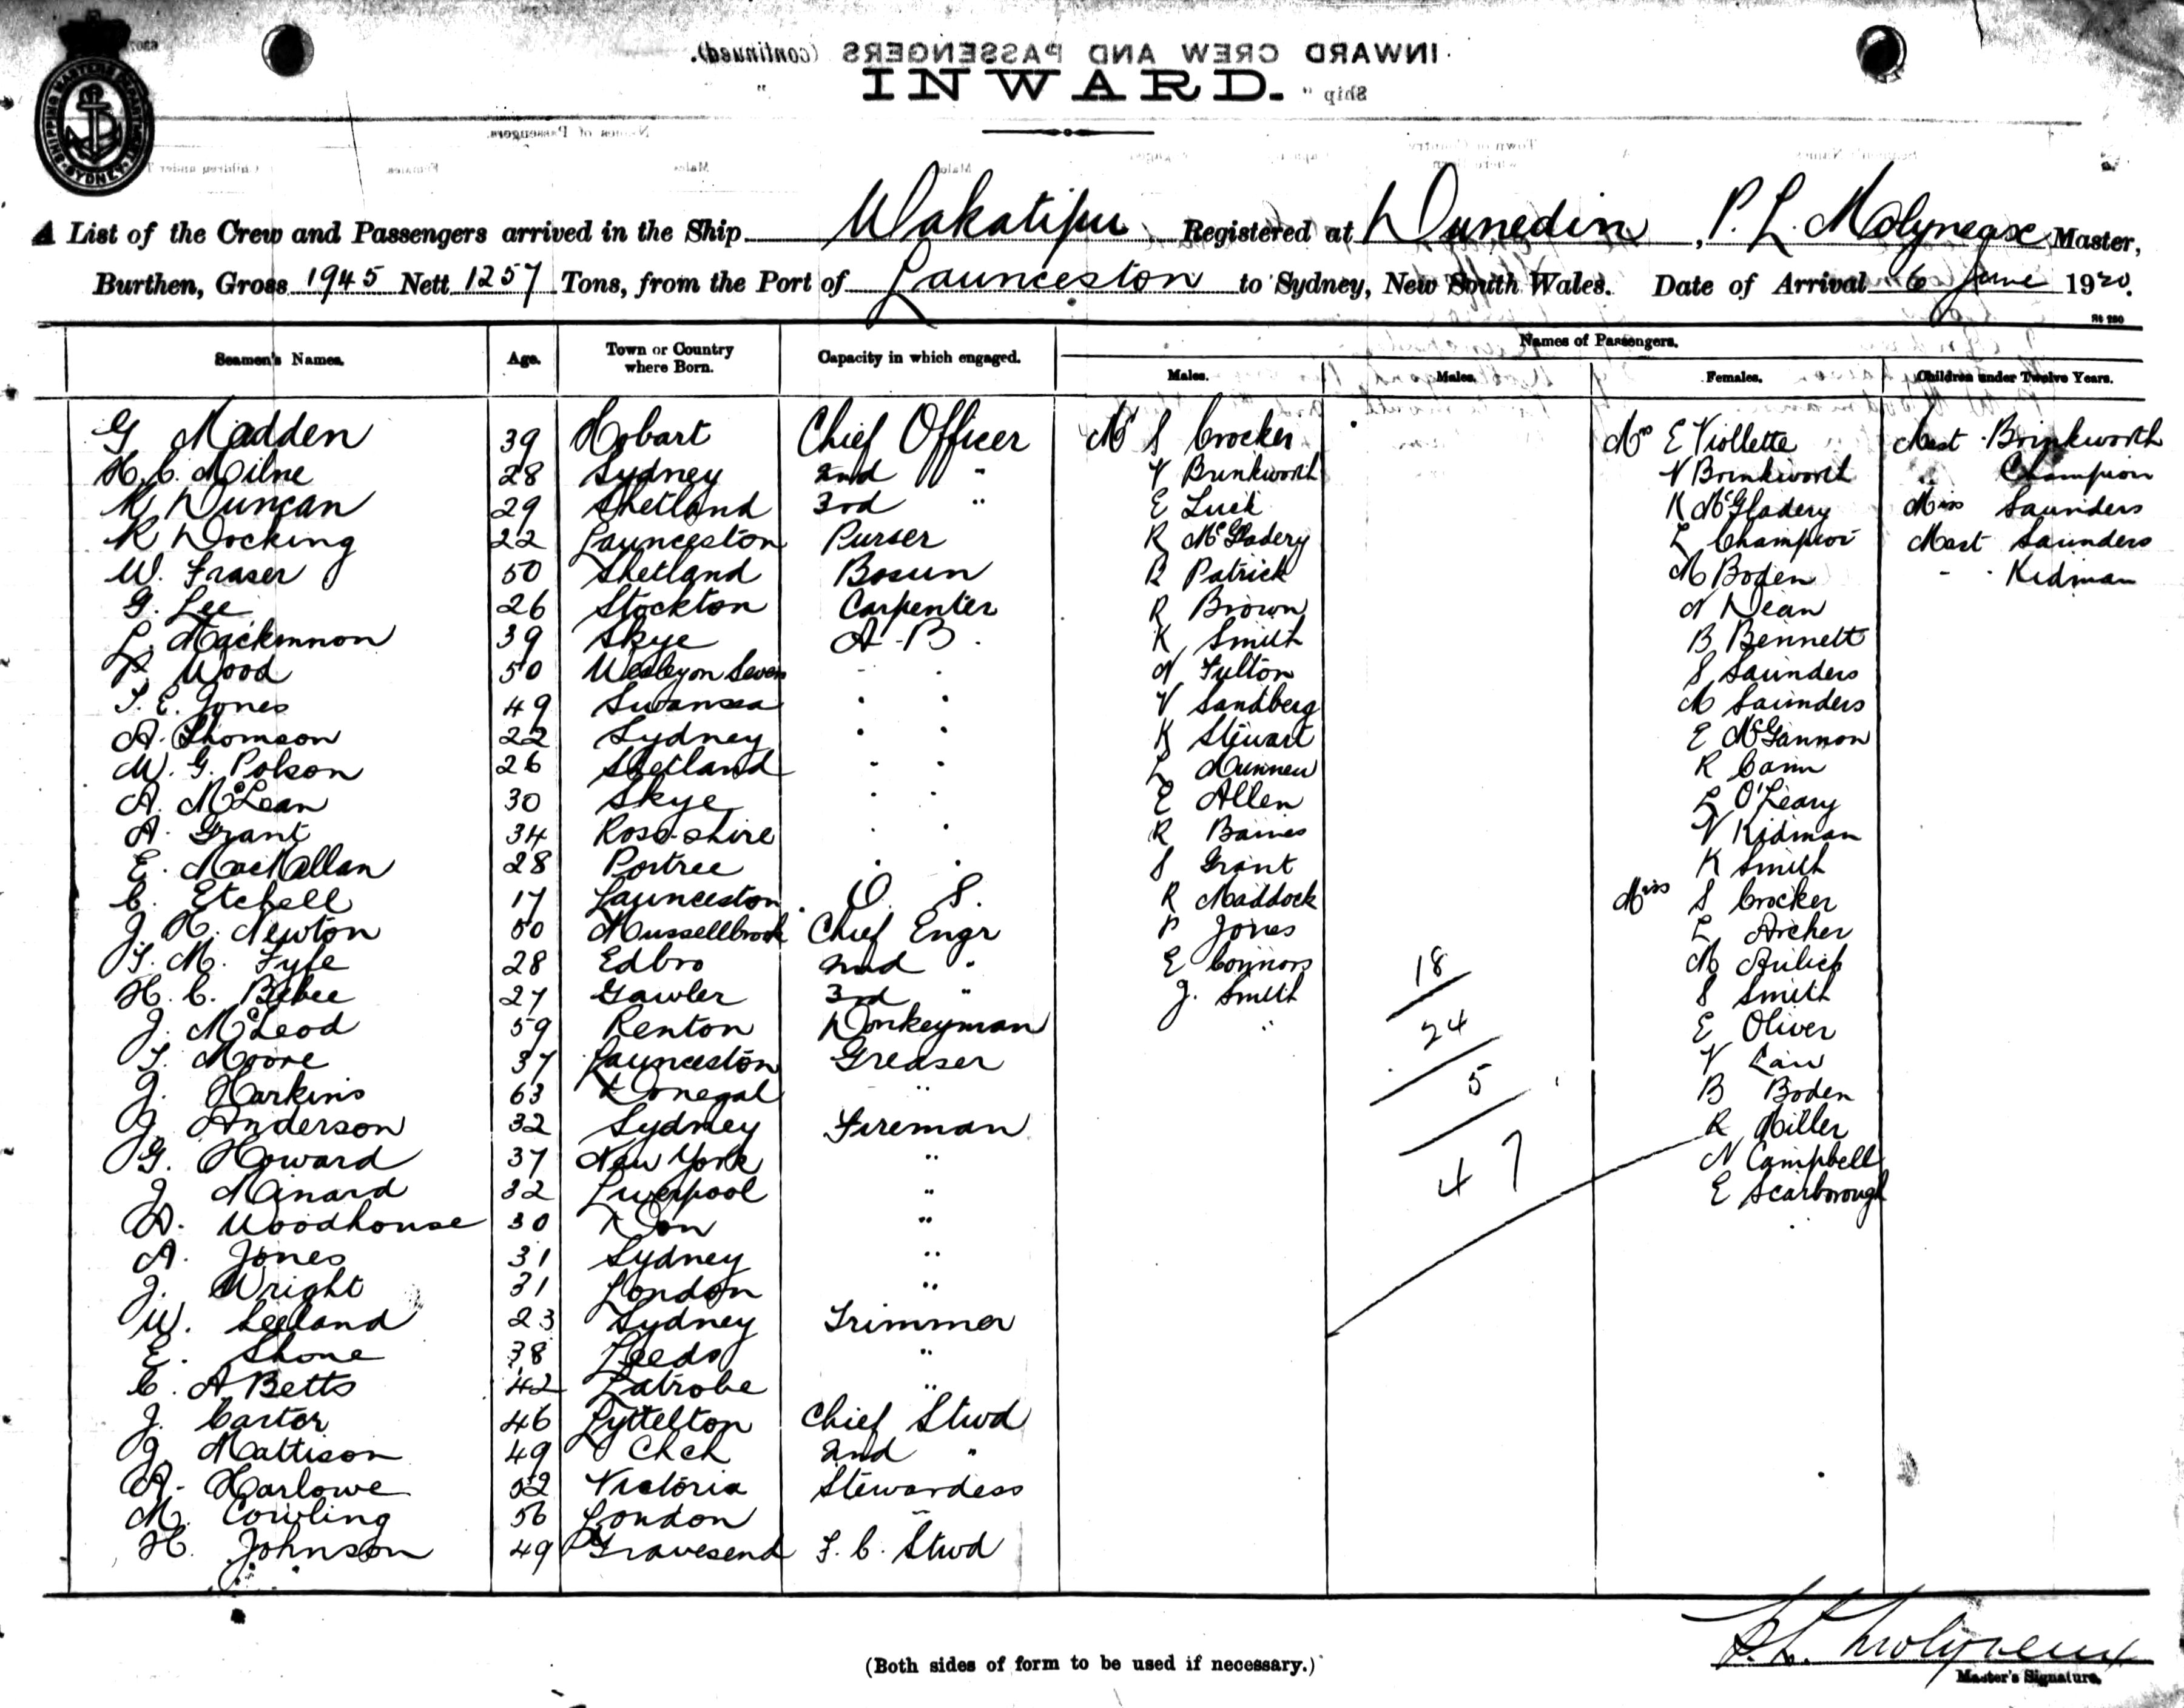 INWARD CREW AND PASSENGERS (continued).
INWARD.
Ship " "
SHIPPING MASTER'S DEPARTMENT SYDNEY
A List of the Crew and Passengers arrived in the Ship Wakatipu Registered at Dunedin, P. L. Molyneux Master,
Burthen, Gross 1945 Nett 1257 Tons, from the Port of Launceston to Sydney, New South Wales. Date of Arrival 6 June 1920.
Names of Passengers.
Seamen's Names. Age. Town or Country where Born. Capacity in which engaged. Males. Males. Females. Children under Twelve Years.
G Madden 39 Hobart Chief Officer Mr S Crocker Mrs E Viollette Mast Brinkworth
H. C. Milne 28 Sydney 2nd " V Brinkworth V Brinkworth " Champion
R Duncan 29 Shetland 3rd " E Luck K McGladery Miss Saunders
R Docking 22 Launceston Purser R McGladery L Champion Mast Saunders
W. Fraser 50 Shetland Bosun B Patrick M Boden - - Kidman
G. Lee 26 Stockton Carpenter R Brown N Dean
L. Mackinnon 39 Skye A-B. K Smith B Bennett
Wood 50 " " N Fulton S Saunders
T. E. Jones 49 Swansea " " V Sandberg M Saunders
A. Thomson 22 Sydney " " K Stewart E McGannon
W. G. Polson 26 Shetland " " L R Cann
A. McLean 30 Skye " " E Allen L O'Leary
A. Grant 34 Ross-shire " " R Baines V Kidman
E. MacKallan 28 Portree " " S Grant K Smith
C. Etchell 17 Launceston O. S. R Maddock Miss S Crocker
J. H. Newton 50 Mussellbrook Chief Engr P Jones L Archer
T. M. Fyfe 28 Edbro 2nd " E Connors M
H. C. Bebee 27 Gawler 3rd " J. Smith S Smith
J. McLeod 59 Renton Donkeyman " E Oliver
T. Moore 37 Launceston Greaser V
J. Harkins 63 Donegal " B Boden
J Anderson 32 Sydney Fireman R Miller
G. Howard 37 New York " N Campbell
J Minard 32 Liverpool " E Scarborough
D. Woodhouse 30 Don "
A. Jones 31 Sydney "
J. Wright 31 London "
W. Leeland 23 Sydney Trimmer
E. Shone 38 Leeds "
C. A Betts 42 Latrobe "
J. Carter 46 Lyttelton Chief Stwd
J. Mattison 49 Chch 2nd "
A. Harlowe 52 Victoria Stewardess
M. Cowling 56 London "
H. Johnson 49 Gravesend F. C. Stwd
18
24
5
47
P. L. Molyneux
Master's Signature.
(Both sides of form to be used if necessary.)